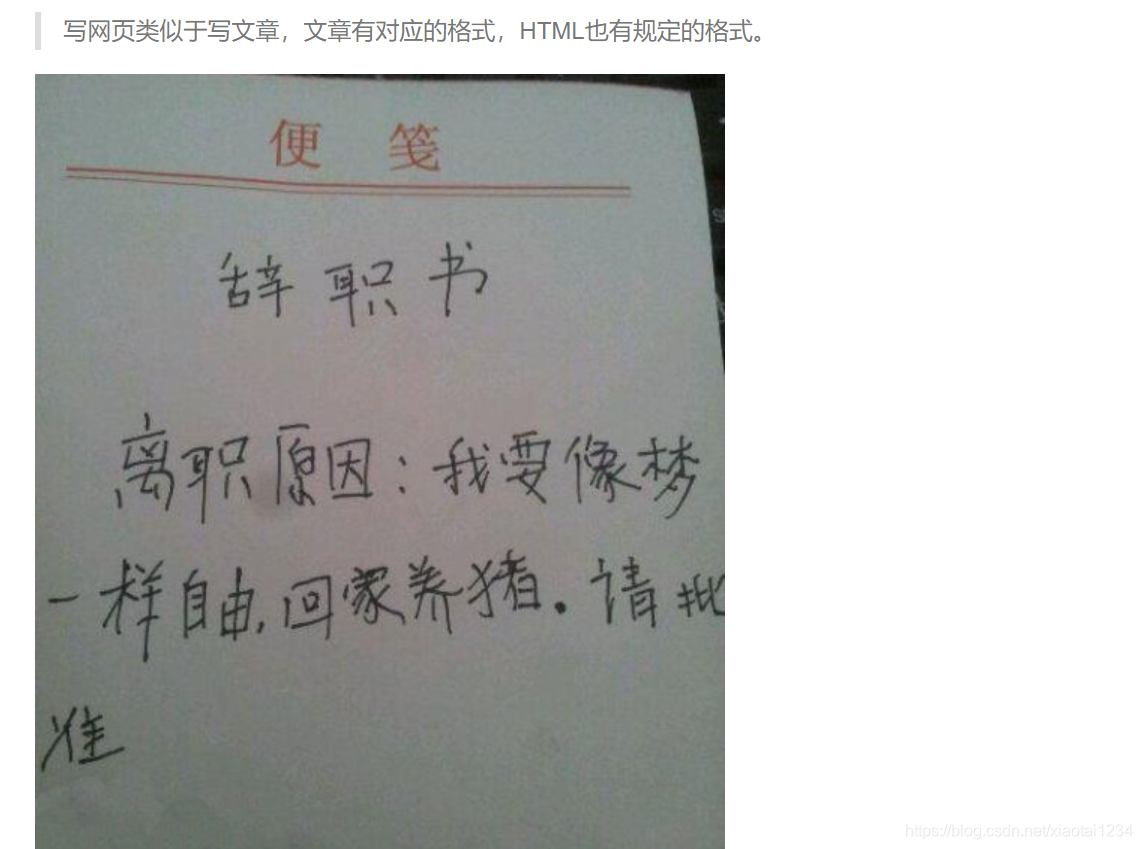 写网页类似于写文章，文章有对应的格式，HTML也有规定的格式。
便 笺
辞职书
离职原因：我要像梦
一样自由，回家养猪。请批
准
https://blog.csdn.net/xiaotai1234